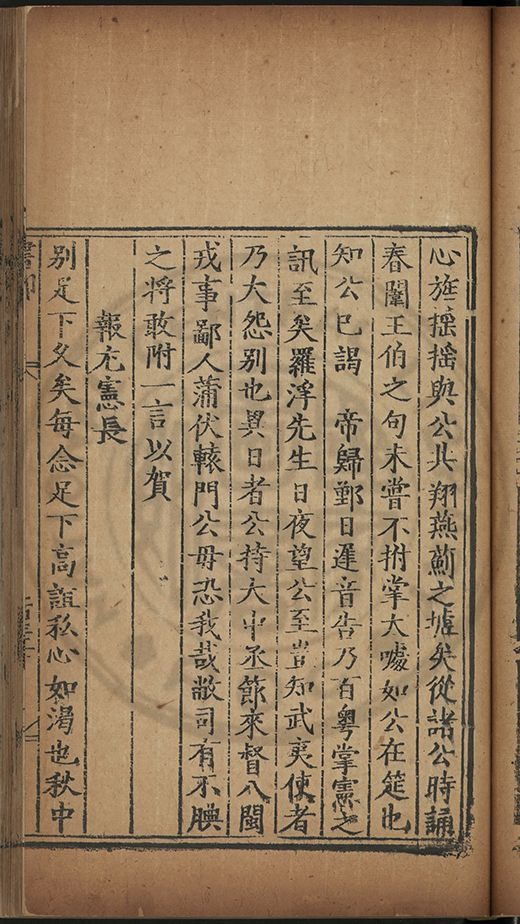 心旌搖搖與公共翔燕薊之墟矣從諸公時誦
春闈王伯之句未嘗不拊掌大噱如公在筵也
知公已謁　帝歸鄞日遲音告乃百粵掌憲之
訊至矣羅浮先生日夜望公至豈知武夷使者
乃大怨別也異日者公持大中丞節來督八閩
戎事鄙人蒲伏轅門公毋恐我哉敝司有不腆
之將敢附一言以賀
報充憲長
別足下久矣每念足下高誼私心如渴也秋中